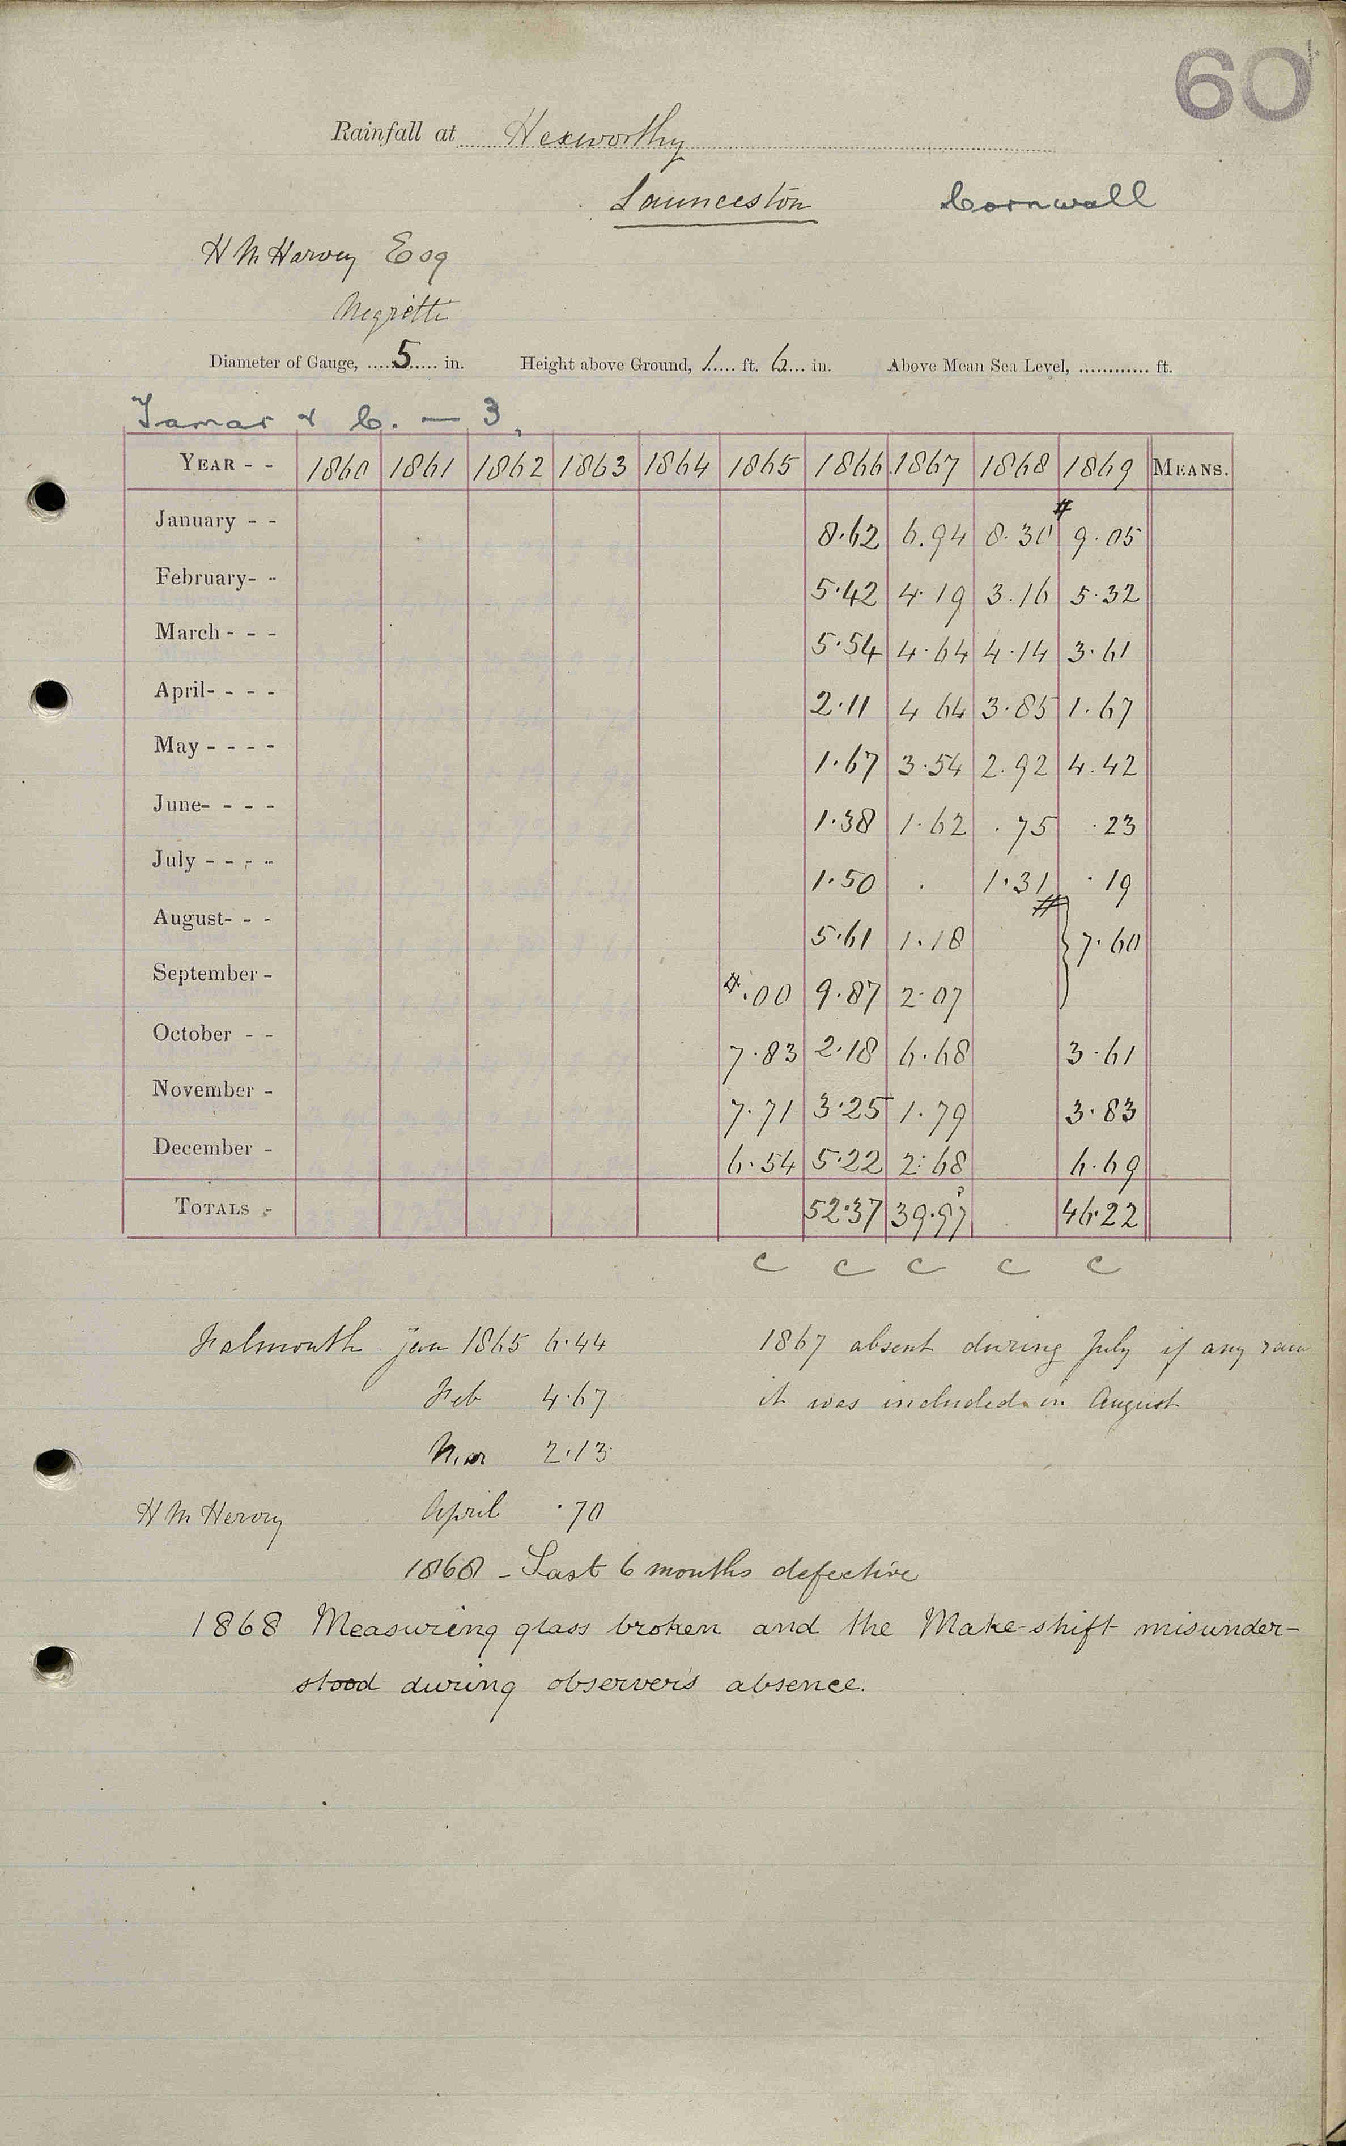 60
Rainfall at Hexworthy
Launceston Cornwall
H M Harvey Esq
Negretti
Diameter of Gauge, 5 in. Height above Ground, 1 ft. 6 in. Above Mean Sea Level, ............ ft.
Tamar & C. — 3.
YEAR - - 1860 1861 1862 1863 1864 1865 1866 1867 1868 1869 MEANS.
January - - 8.62 6.94 8.30 # 9.05
February- - 5.42 4.19 3.16 5.32
March - - - 5.54 4.64 4.14 3.61
April- - - - 2.11 4 64 3.85 1.67
May - - - - 1.67 3.54 2.92 4.42
June- - - - 1.38 1.62 .75 .23
July - - - - 1.50 . 1.31 .19
August- - - 5.61 1.18 # } 7.60
September - #.00 9.87 2.07
October - - 7.83 2.18 6.68 3.61
November - 7.71 3.25 1.79 3.83
December - 6.54 5.22 2.68 6.69
TOTALS - 52.37 39.97 46.22
C C C C C
Falmouth jan 1865 6.44
Feb 4.67
Mar 2.13
April .70
1867 absent during July if any rain
it was included in August
H M Harvey
1868 - Last 6 months defective
1868 Measuring glass broken and the Make-shift misunder-
stood during observers absence.